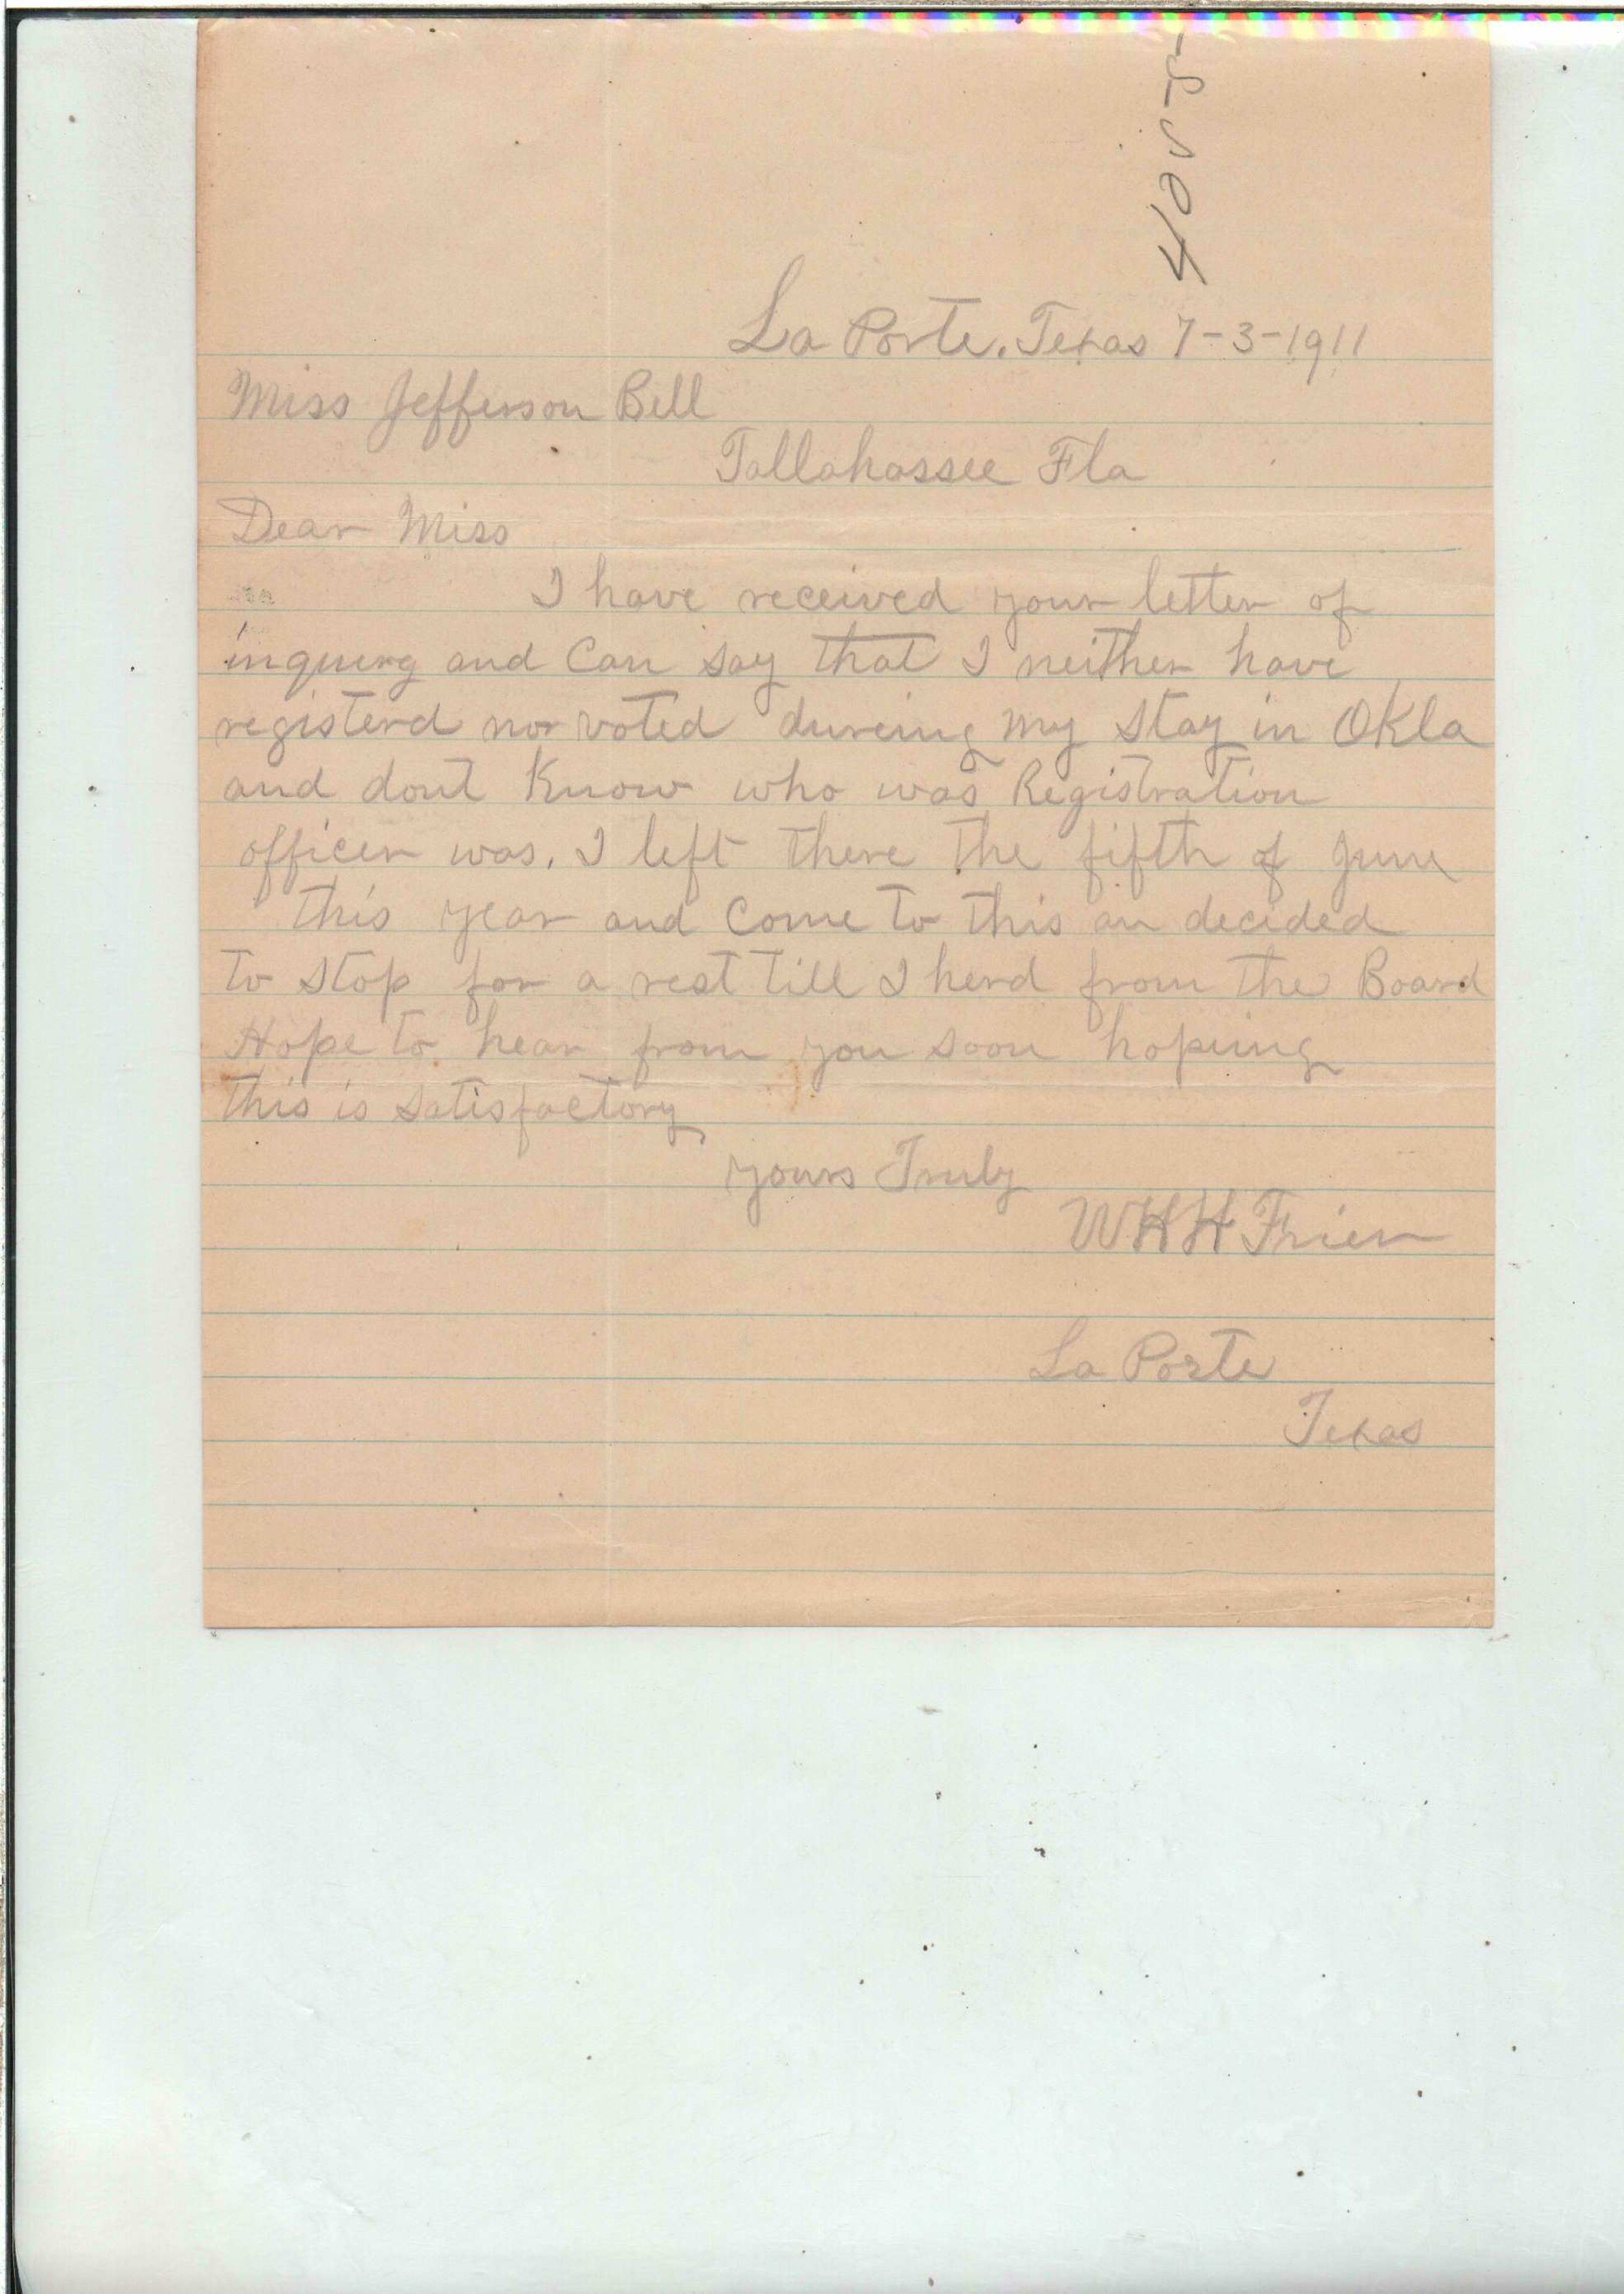 La Porte, Texas 7-3-1911
Miss Jefferson Bell
Tallahassee Fla
Dear Miss
I have received your letter of
inquery and Can say that I neither have
registerd nor voted dureing my stay in Okla
and dont Know who was Registration
officer was. I left there the fifth of June
this year and Come to this an decided
to stop for a rest till I herd from the Board
Hope to hear from you soon hopeing
this is satisfactory
yours Truly
W H H Frier
La Porte
Texas